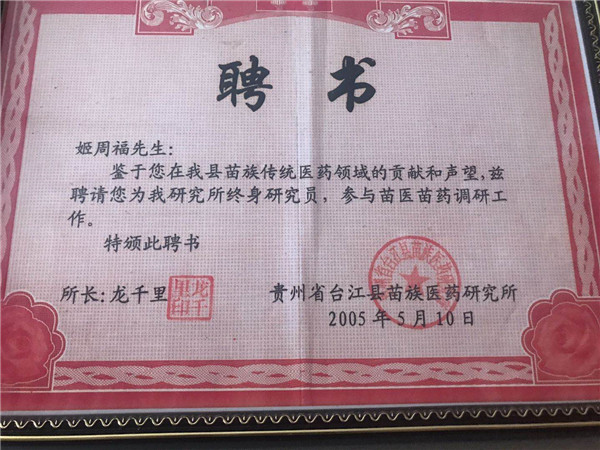 聘书
姬周福先生:
鉴于您在我县苗族传统医药领域的贡献和声望,兹
聘请您为我研究所终身研究员,参与苗医苗药调研工
作。
特颁此聘书
所长:龙千里
龙千里印
贵州省台江县苗族医药研究所
2005年5月10日